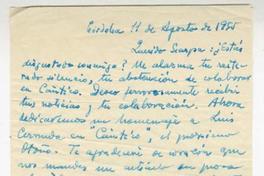 Córdoba 11 de Agosto de 1955
Querido Scarpa: ¿Estás
disgustado conmigo? Me alarma tu reite-
rado silencio, tu abstención de colaborar
en Cántico. Deseo fervorosamente recibir
tus noticias, y tu colaboración. Ahora
dedicaremos un homenaje a Luis
Cernuda en "Cántico", el próximo
Otoño. Te agradeceré de corazón que
nos mandes un artículo en prosa